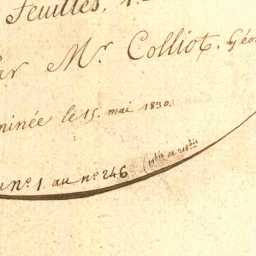 Feuilles,
Par Mr Colliot, Géo
minée le 15 mai 1830.
u n° 1. au n° 246